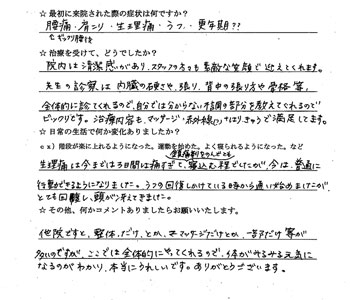 ☆ 最初に来院された際の症状は何ですか？
腰痛・肩こり・生理痛・うつ・更年期??
ギックリ腰後
☆ 治療を受けて、どうでしたか？
院内は清潔感があり、スタッフの方も素敵な笑顔で迎えてくれます。
先生の診察は内臓の硬さや張り、背中の張り方や骨格等、
全体的に診てくれるので、自分では分からない不調の部分を教えてくれるので
ビックリです。治療内容も、マッサージ・赤外線 はりきゅうで満足してます。
☆ 日常の生活で何か変わりましたか？
ｅｘ）階段が楽に上れるようになった。運動を始めた。よく寝られるようになった。など
鎮痛剤をのんでも
生理痛は今までは3日間は痛すぎて、寝込む程でしたが、今は、普通に
行動ができるようになりました。うつの回復しかけている時から通い始めましたが
とても回転し、頭が冴えてきました。
☆ その他、何かコメントありましたらお願いいたします。
他院ですと、整体だけ、とか、マッサージだけとか、一部だけ等が
多いのですが、ここでは全体的にやってくれるので、体がみるみる元気に
なるのがわかり、本当にうれしいです。ありがとうございます。